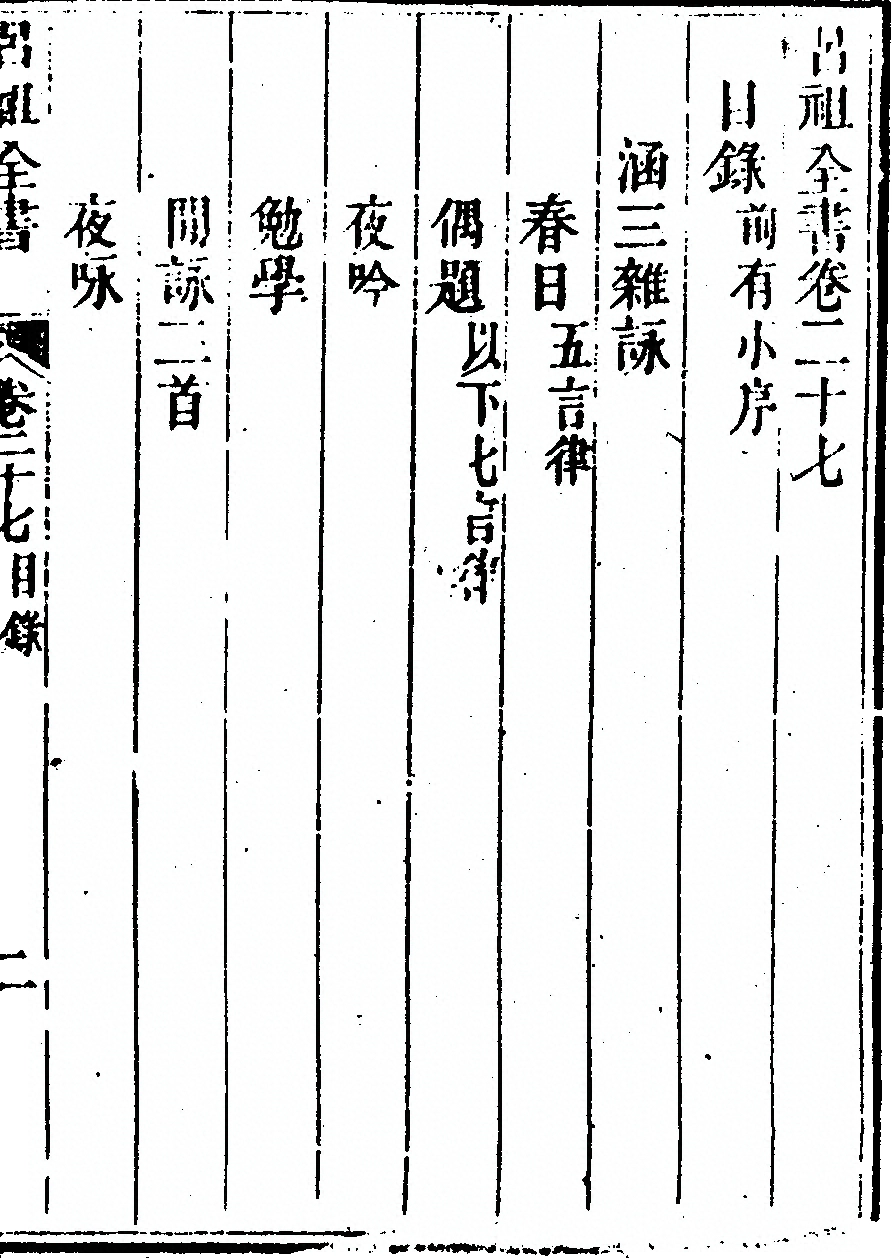 呂祖全書卷二十七
目錄前有小序
涵三雜詠
春日五言律
偶題以下七言律
夜吟
勉學
閒詠二首
夜咏
呂祖全書 卷二十七目錄 二